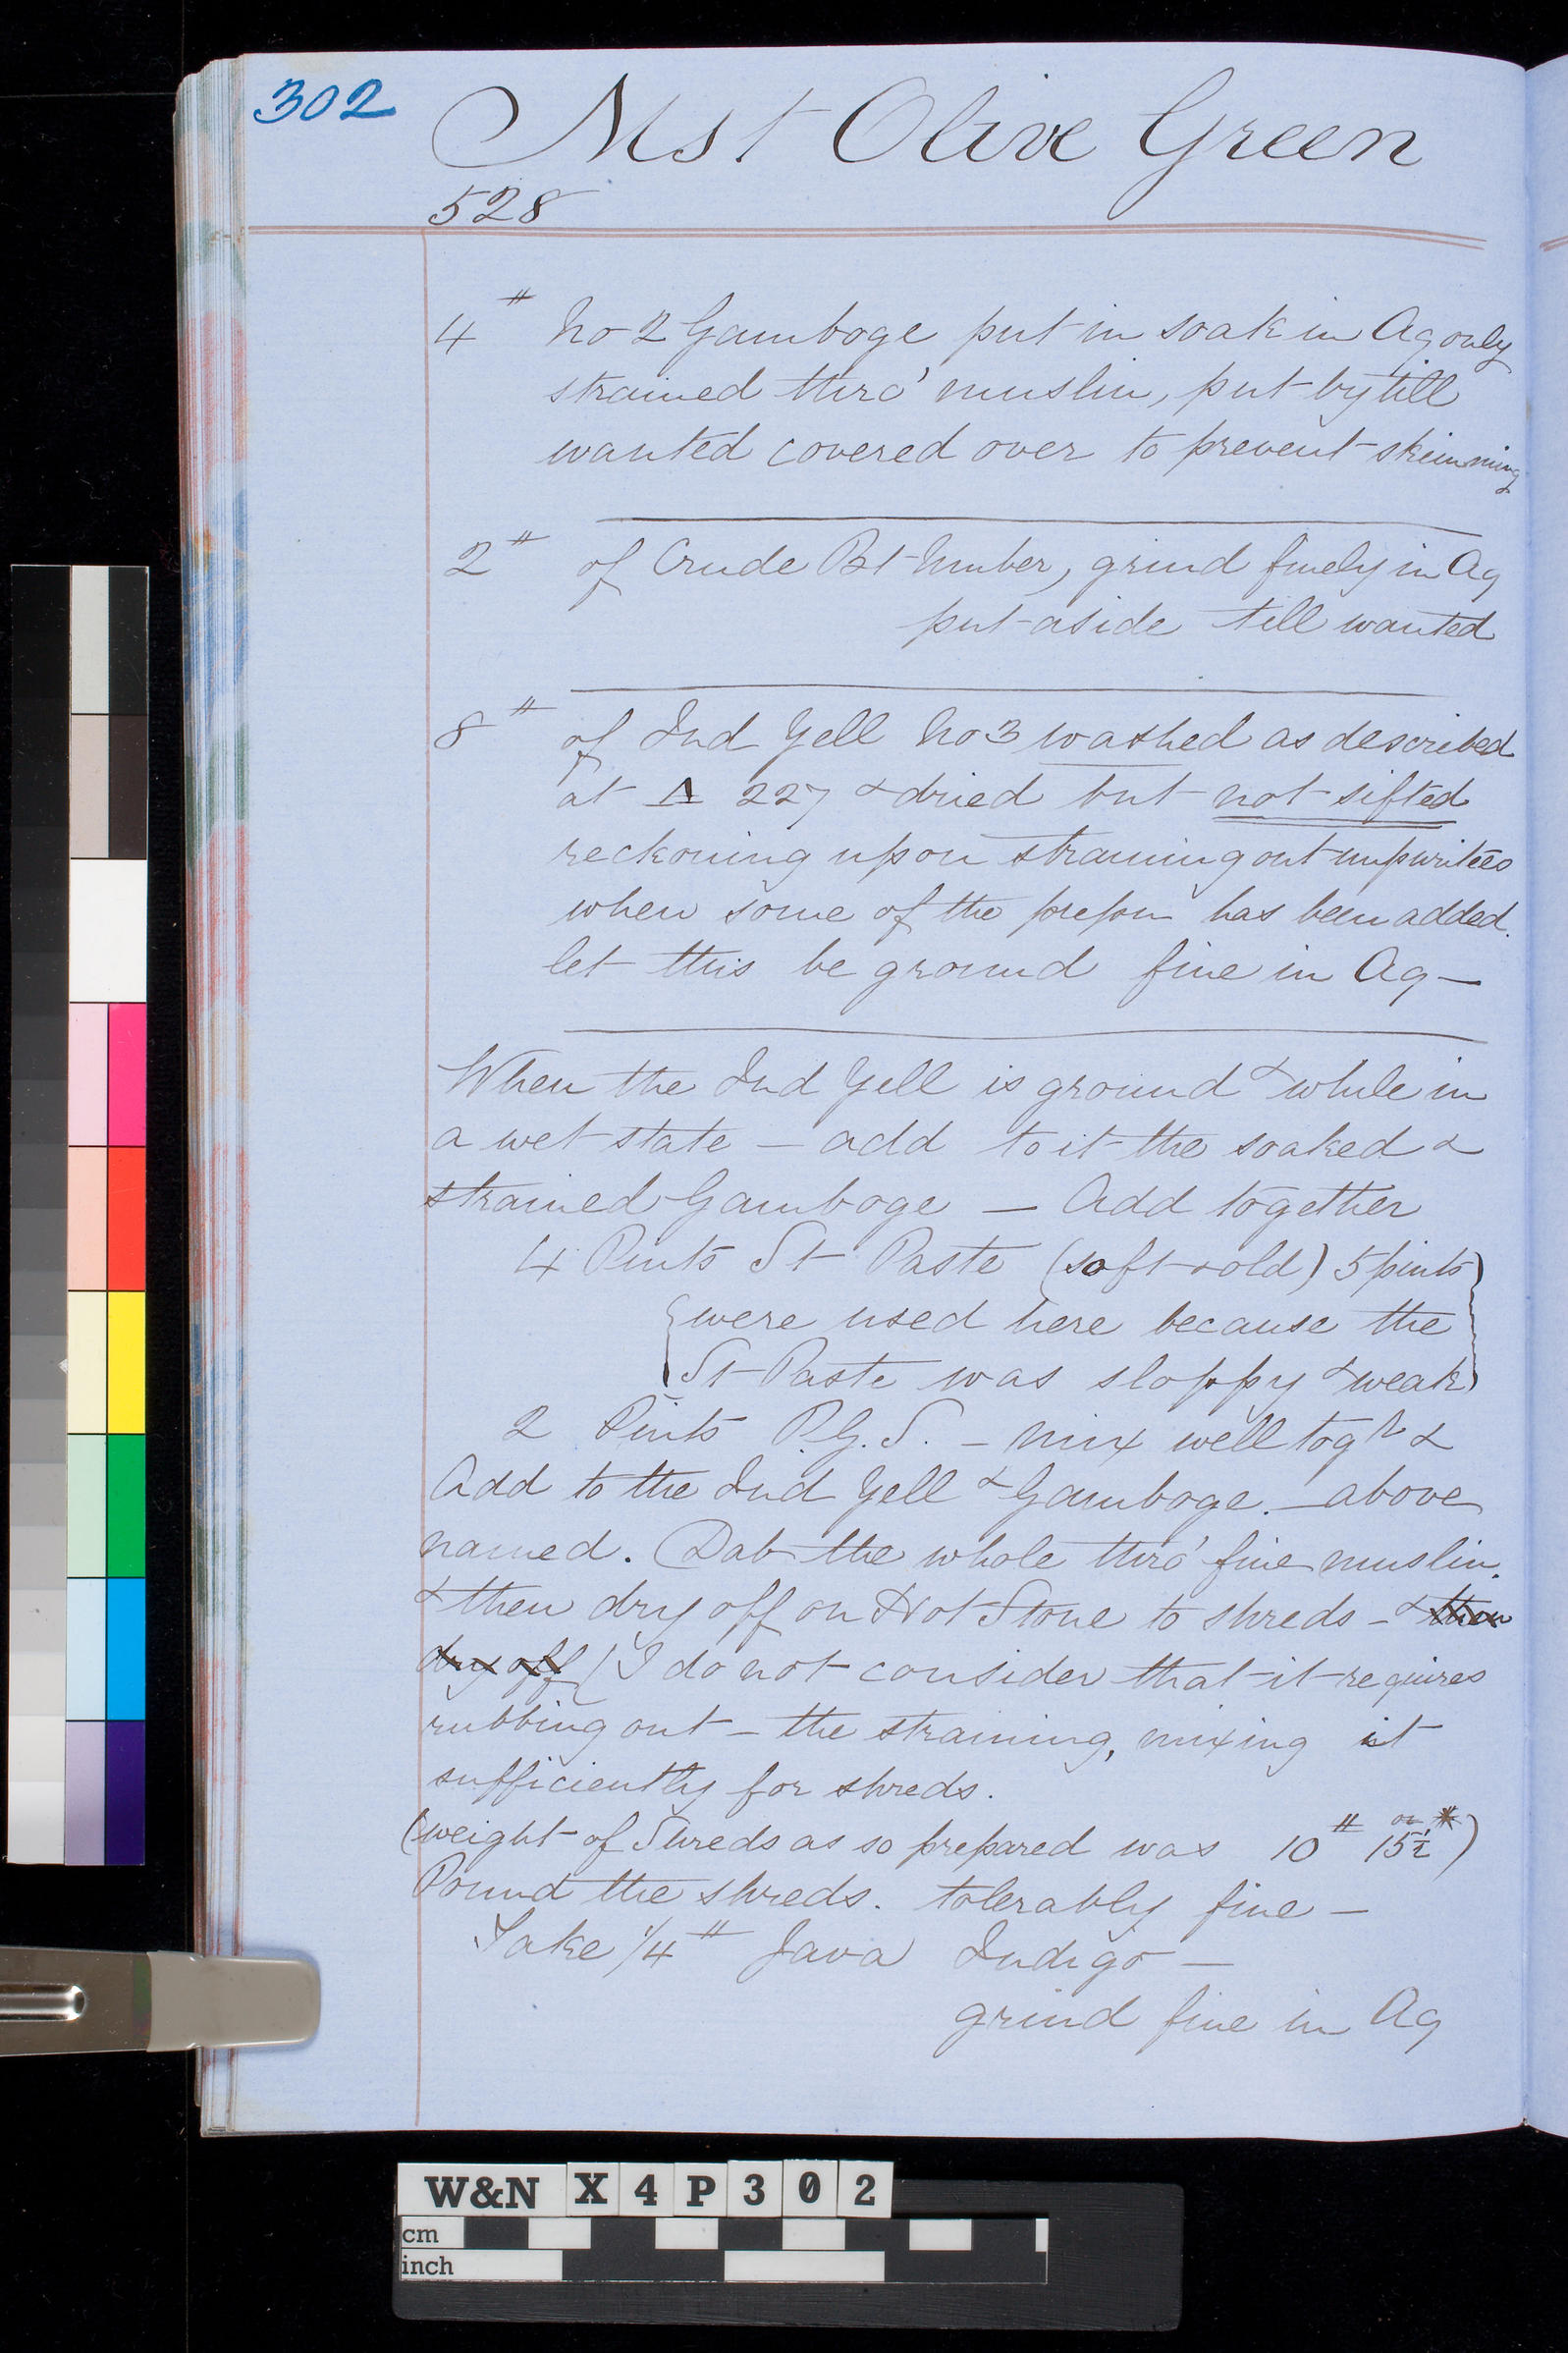 302
Mst Olive Green
528
4 # No 2 Gamboge put in soak in Aq only
strained thro' muslin, put by till
wanted covered over to prevent skinning
2 # of Crude Bt Umber, grind finely in Aq
put aside till wanted
8 # of Ind Yell No 3 washed as described
at Λ 227 & dried but not sifted
reckoning upon straining out impurities
when some of the prepn has been added.
let this be ground fine in Aq –
When the Ind Yell is ground & while in
a wet state – add to it the soaked &
strained Gamboge – Add together
4 Pints St Paste (soft & old) 5 pints
were used here because the
St Paste was sloppy & weak
2 Pints P.G.S. – mix well togr &
Add to the Ind Yell & Gamboge. – above
named. Dab the whole thro' fine muslin.
& then dry off on Hot Stone to shreds – & then
dry off (I do not consider that it requires
rubbing out – the straining, mixing it
sufficiently for shreds.
(weight of Shreds as so prepared was 10 # 15½ oz *)
Pound the shreds. tolerably fine –
Take 1/4 # Java Indigo –
grind fine in Aq
W&N X 4 P 3 0 2
cm
inch